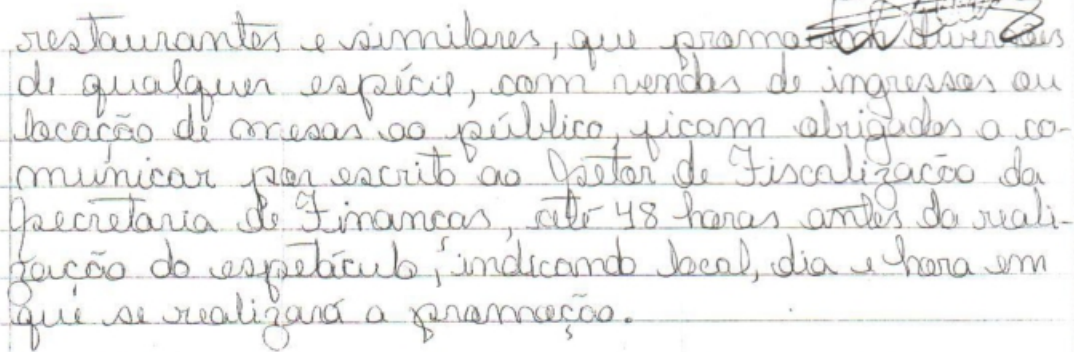 restaurantes e similares, que promovem diversões
de qualquer espécie, com vendas de ingressos ou
locação de mesas ao público, ficam obrigados a co-
municar por escrito ao Setor de Fiscalização da
Secretaria de Finanças, até 48 horas antes da reali-
zação do espetáculo, indicando local, dia e hora em
que se realizará a promoção.